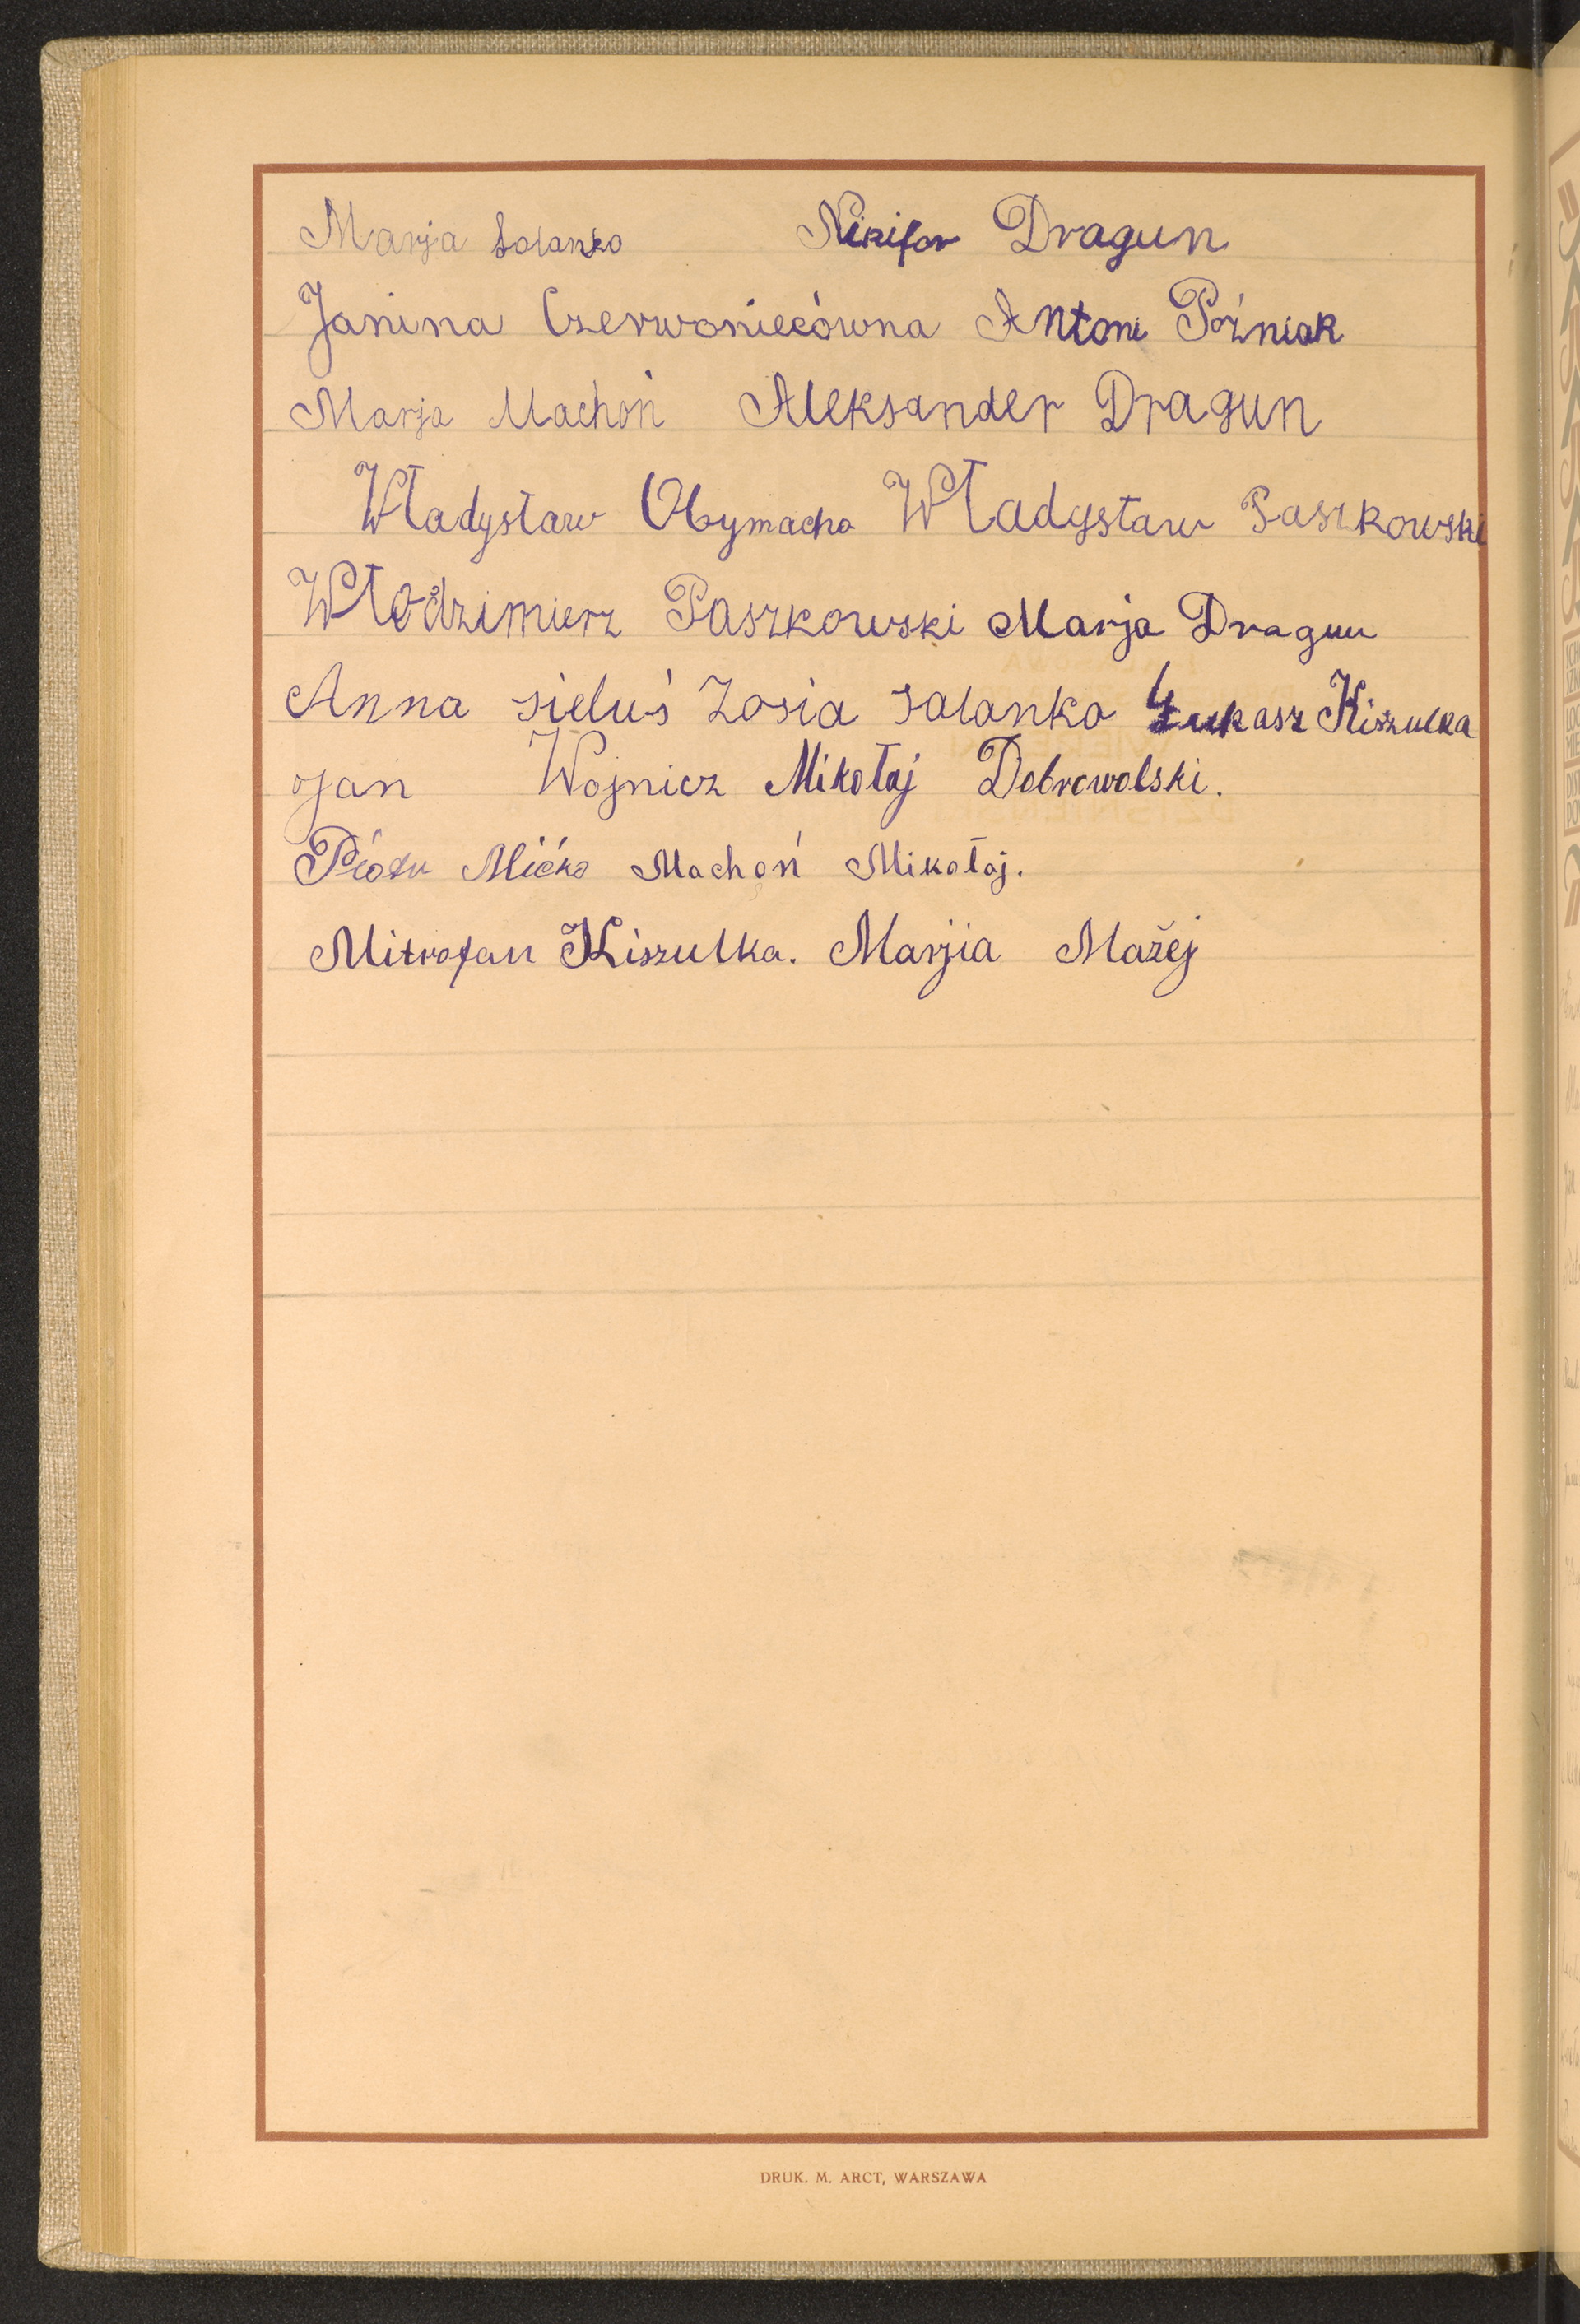 Marja Solanko Nikifor Dragun
Janina Czerwoniecówna Antoni Poźniak
Marja Machoń Aleksander Dragun
Władysław Obymacha Władysław Paszkowski
Włodzimierz Paszkowski Marja Dragun
Anna Sieluś Zosia Salanko Łukasz Kiszulka
Jan Wojnicz Mikołaj Dobrowolski.
Piotr Mićko Machoń Mikołaj.
Mitrofan Kiszulka. Marjia Mażej
DRUK. M. ARCT, WARSZAWA